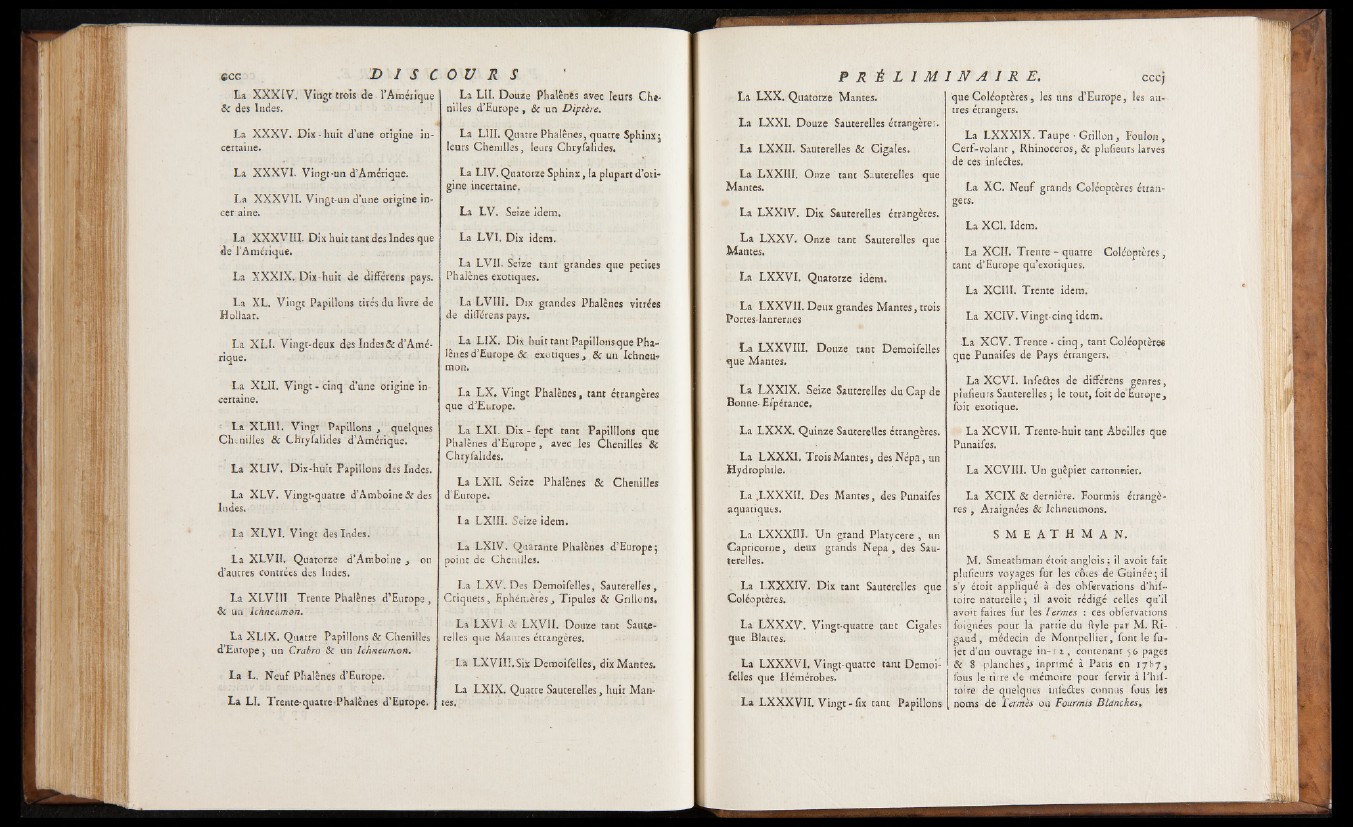 ccc DISCOURS
La XXXIV. Vingt trois de l'Amérique
& des Indes.
La XXXV. Dix-huit d'une origine in-
certaine.
La XXXVI. Vingt-un d'Amérique.
La XXXVII. Vingt-un d'une origine in-
certaine.
La XXXVIII. Dix huit tant des Indes que
de l'Amérique.
La XXXIX. Dix-huit de différens pays.
La XL. Vingt Papillons tirés du livre de
Hollaar.
La XLI. Vingt-deux des Indes & d'Amé-
rique.
La XLII. Vingt-cinq d'une origine in-
certaine.
La XLIII. Vingt Papillons, quelques
Chenilles & Chryſalides d'Amérique.
La XLIV. Dix-huit Papillons des Indes.
La XLV. Vingt-quatre d'Amboine & des
Indes.
La XLVI. Vingt des Indes.
La XLVII. Quatorze d'Amboine, ou
d'autres contrées des Indes.
La XLVIII. Trente Phalènes d'Europe,
& un Ichneumon.
La XLIX. Quatre Papillons & Chenilles
d'Europe; un Crabro & un Ichneumon.
La L. Neuf Phalènes d'Europe.
La LI. Trente-quatre Phalènes d'Europe.
La LII. Douze Phalènes avec leurs Che-
nilles d'Europe, & un Diptère.
La LIII. Quatre Phalènes, quatre Sphinx;
leurs Chenilles, leurs Chryſalides.
La LIV. Quatorze Sphinx, la plupart d'ori-
gine incertaine.
La LV. Seize idem.
La LVI. Dix idem.
La LVII. Seize tant grandes que petites
Phalènes exotiques.
La LVIII. Dix grandes Phalènes vitrées
de différens pays.
La LIX. Dix huit tant Papillons que Pha-
lènes d'Europe & exotiques, & un Ichneu-
mon.
La LX. Vingt Phalènes, tant étrangères
que d'Europe.
La LXI. Dix-ſept tant Papilllons que
Phalènes d'Europe, avec les Chenilles &
Chryſalides.
La LXII. Seize Phalènes & Chenilles
d'Europe.
La LXIII. Seize idem.
La LXIV. Quarante Phalènes d'Europe;
point de Chenilles.
La LXV. Des Demoiſelles, Sauterelles,
Criquets, Ephémères, Tipules & Grillons.
La LXVI & LXVII. Douze tant Saute-
relles que Mantes étrangères.
La LXVIII. Six Demoiſelles, dix Mantes.
La LXIX. Quatre Sauterelles, huit Man-
tes.
PRÉLIMINAIRE. cccj
La LXX. Quatorze Mantes.
La LXXI. Douze Sauterelles étrangères.
La LXXII. Sauterelles & Cigales.
La LXXIII. Onze tant Sauterelles que
Mantes.
La LXXIV. Dix Sauterelles étrangères.
La LXXV. Onze tant Sauterelles que
Mantes.
La LXXVI. Quatorze idem.
La LXXVII. Deux grandes Mantes, trois
Portes-lanternes
La LXXVIII. Douze tant Demoiſelles
que Mantes.
La LXXIX. Seize Sauterelles du Cap de
Bonne-Eſpérance.
La LXXX. Quinze Sauterelles étrangères.
La LXXXI. Trois Mantes, des Népa, un
Hydrophile.
La LXXXII. Des Mantes, des Punaiſes
aquatiques.
La LXXXIII. Un grand Platycere, un
Capricorne, deux grands Nepa, des Sau-
terelles.
La LXXXIV. Dix tant Sauterelles que
Coléoptères.
La LXXXV. Vingt-quatre tant Cigales
que Blattes.
La LXXXVI. Vingt-quatre tant Demoi-
ſelles que Hémérobes.
La LXXXVII. Vingt-ſix tant Papillons
que Coléoptères, les uns d'Europe, les au-
tres étrangers.
La LXXXIX. Taupe-Grillon, Foulon,
Cerf-volant, Rhinoceros, & pluſieurs larves
de ces inſectes.
La XC. Neuf grands Coléoptères étran-
gers.
La XCI. Idem.
La XCII. Trente-quatre Coléoptères,
tant d'Europe qu'exotiques.
La XCIII. Trente idem.
La XCIV. Vingt-cinq idem.
La XCV. Trente-cinq, tant Coléoptères
que Punaiſes de Pays étrangers.
La XCVI. Inſectes de différens genres,
pluſieurs Sauterelles; le tout, ſoit de Europe,
ſoit exotique.
La XCVII. Trente-huit tant Abeilles que
Punaiſes.
La XCVIII. Un guêpier cartonnier.
La XCIX & dernière. Fourmis étrangè-
res, Araignées & Ichneumons.
SMEATHMAN.
M. Smeathman étoit anglois; il avoit fait
pluſieurs voyages ſur les côtes de Guinée; il
s'y étoit appliqué à des obſervations d'hiſ-
toire naturelle; il avoit rédigé celles qu'il
avoit faires ſur les Termes: ces obſervations
ſoignées pour la partie du ſtyle par M. Ri-
gaud, médecin de Montpellier, ſont le ſu-
jet d'un ouvrage in-12, contenant 56 pages
& 8 planches, inprimé à Paris en 1787,
ſous le titre de mémoire pour ſervir à l'hiſ-
toire de quelques inſectes connus ſous les
noms de Termès ou Fourmis Blanches.